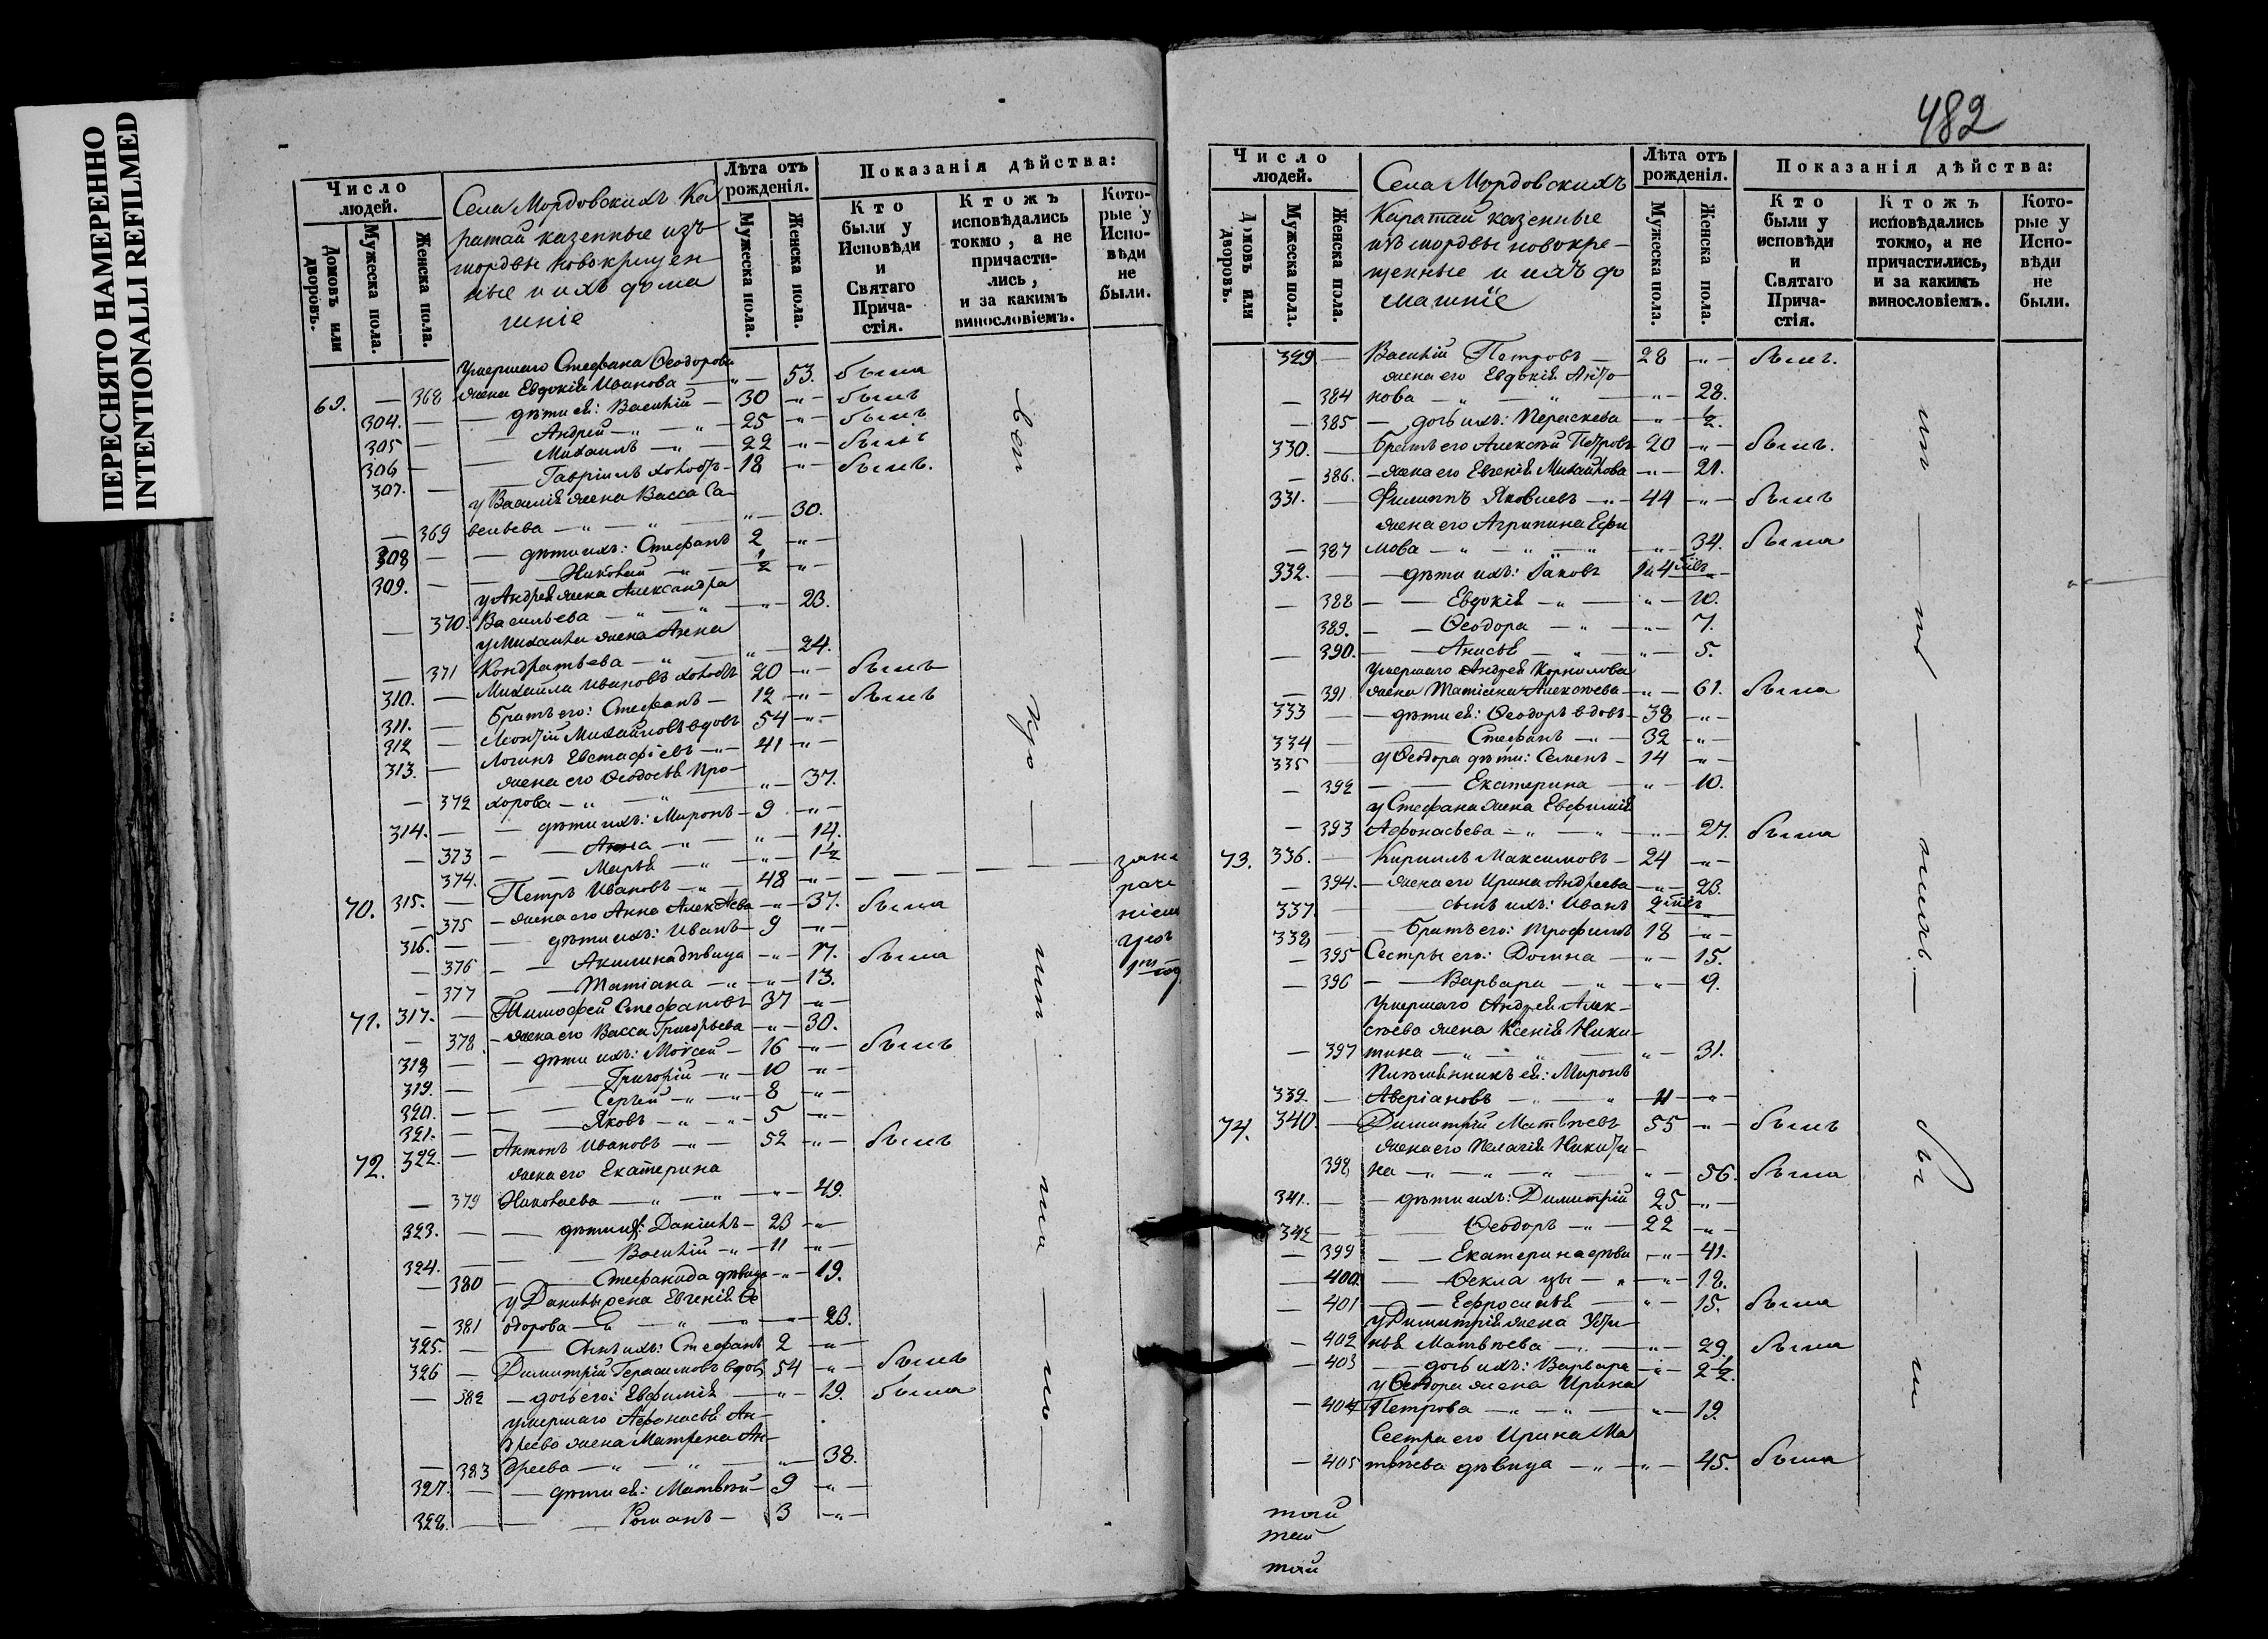 ПЕРЕСНЯТО НАМЕРЕННО
INTENTIONALLI REFILMED
Число людей.
Домовъ или дворовъ.
Мужеска пола.
Женска пола.
Села Мордовскихъ Ка
ратай казенные изъ
мордвы новокрещен
ные и ихъ дома
шніе
Лѣта отъ рожденія.
Мужеска пола.
Женска пола.
Показанія дѣйства:
Кто были у Исповѣди и Святаго Прича-стія.
Ктожъ исповѣдались токмо, а не причасти-лись, и за какимъ винословіемъ.
Кото-рые у Испо-вѣди не были.
умершаго Стефана Ѳеодорова
69. — 368 жена Евдокія Иванова — „ — 53. была
304. — — дѣти ея: Василій — 30 — „ — былъ
305 — — Андрей — „ — „ — 25 — „ — былъ
306 — — Михаилъ — „ — 22 — „ — былъ
307. — — Гавріилъ холостъ — 18 — „ — былъ.
у Василія жена Васса Са-
— 369 вельева — „ — „ — „ — 30.
308 — — дѣти ихъ: Стефанъ 2 — „ —
309. — — Николай — „ — 1/2 — „ —
у Андрея жена Александра
— 370. Васильева — „ — „ — „ — 23.
у Михаила жена Анна
— 371 Кондратьева — „ — „ — 24.
310. — Михайла Ивановъ холостъ 20 — „ — былъ
311. — братъ его: Стефанъ — 12 — „ — былъ
312 — Леонтій Михайловъ вдовъ 54 — „ —
313. — Логинъ Евстафіевъ — „ — 41 — „ —
жена его Ѳеодосья Про-
— 372 хорова — „ — „ — „ — 37.
314. — — дѣти ихъ: Миронъ — 9 — „ —
— 373 — — Анна — „ — „ — 14.
374. — — Марья — „ — „ — 1 1/2
70. 315. — Петръ Ивановъ — „ — 48 — „ —
— 375 — жена его Анна Алексѣева — „ — 37. была
316. — — дѣти ихъ: Иванъ — 9 — „ —
— 376 — — Акилина дѣвица — „ — 17. была
— 377 — Матіана — „ — „ — 13.
71. 317. — Тимофей Стефановъ 37 — „ —
— 378. — жена его Васса Григорьева — „ — 30.
318 — — дѣти ихъ: Моѵсей — 16 — „ — былъ
319. — — Григорій — „ — 10 — „ —
320. — — Сергѣй — „ — „ — 8 — „ —
321. — — Яковъ — „ — „ — 5 — „ —
72. 322. — Антонъ Ивановъ — „ — 52 — „ — былъ
жена его Екатерина
— 379 Николаева — „ — „ — „ — 49.
323. — — дѣти ихъ: Даніилъ — 23 — „ —
324. — — Василій — „ — 11 — „ —
— 380 — — Стефанида дѣвица — „ — 19.
у Данилы жена Евгенія Ѳе
— 381 одорова — „ — „ — „ — 23.
325. — — сынъ ихъ: Стефанъ 2 — „ —
326 — Димитрій Герасимовъ вдовъ 54 — „ — былъ
— 382 — дочь его: Евфимія — „ — 19. была
умершаго Афонасья Ан-
дреева жена Матрена Ан-
— 383 дреева — „ — „ — „ — 38.
327. — — дѣти ея: Матвѣй — 9 — „ —
328. — — Романъ — 3 — „ —
482
Число людей.
Домовъ или дворовъ.
Мужеска пола.
Женска пола.
Села Мордовскихъ
Каратай казенные
изъ мордвы новокре-
щенные и ихъ до
машніе
Лѣта отъ рожденія.
Мужеска пола.
Женска пола.
Показанія дѣйства:
Кто были у исповѣди и Святаго Прича-стія.
Ктожъ исповѣдались токмо, а не причастились, и за какимъ винословіемъ.
Кото-рые у Испо-вѣди не были.
329 — Василій Петровъ — 28 — „ — былъ.
жена его Евдокія Анто-
— 384 нова — „ — „ — „ — 28.
— 385 — дочь ихъ: Параскева — „ — 1/2.
330. — братъ его Алексѣй Петровъ 20 — „ — былъ.
— 386. — жена его Евгенія Михайлова — „ — 21.
331. — Филиппъ Яковлевъ — „ — 44 — „ — былъ
жена его Агрипина Ефи
— 387 мова — „ — „ — „ — „ — 34. была
332. — — дѣти ихъ: Іаковъ
— 388 — — Евдокія — „ — „ — 10.
389. — — Ѳеодора — „ — „ — 7.
— 390. — — Анисья — „ — „ — 5.
умершаго Андрея Корнилова
— 391 жена Татіана Алексѣева — „ — 61. была
333 — — дѣти ея: Ѳеодоръ вдовъ — 38 — „ —
334 — — Стефанъ — „ — 32 — „ —
335 у Ѳеодора дѣти: Семенъ — 14 — „ —
— 392 — — Екатерина — „ — 10.
у Стефана жена Евфимія
— 393 Афонасьева — „ — „ — „ — 27. была
73. 336. — Кириллъ Максимовъ — 24 — „ —
— 394. — жена его Ирина Андреева — „ — 23.
337. — — сынъ ихъ: Иванъ
338 — — братъ его: Трофимъ 18 — „ —
— 395 Сестры его: Домна — „ — 15.
— 396 — — Варвара — „ — „ — 9.
умершаго Андрея Алек-
сѣева жена Ксенія Ники-
— 397 тина — „ — „ — „ — 31.
Племянникъ ея: Миронъ
339. — Аверіановъ — „ — „ 11 — „ —
74. 340. — Димитрій Матвѣевъ 55 — „ — былъ
жена его Пелагія Никити-
398 на — „ — „ — „ — „ — 56. была
341. — — дѣти ихъ: Димитрій 25 — „ —
342 — Ѳеодоръ — „ — 22 — „ —
— 399 — — Екатерина дѣви — „ — 41.
— 400. — Ѳекла цы — „ — „ — 18.
— 401 — — Ефросинья — „ — 15. была
у Димитрія жена Усти-
— 402 нья Матвѣева — „ — „ — 29. была
— 403 — — дочь ихъ: Варвара — „ — 2 1/2.
у Ѳеодора жена Ирина
— 404 Петрова — „ — „ — „ — 19.
Сестра его Ирина Ма
— 405 твѣева дѣвица — „ — „ — 45. была